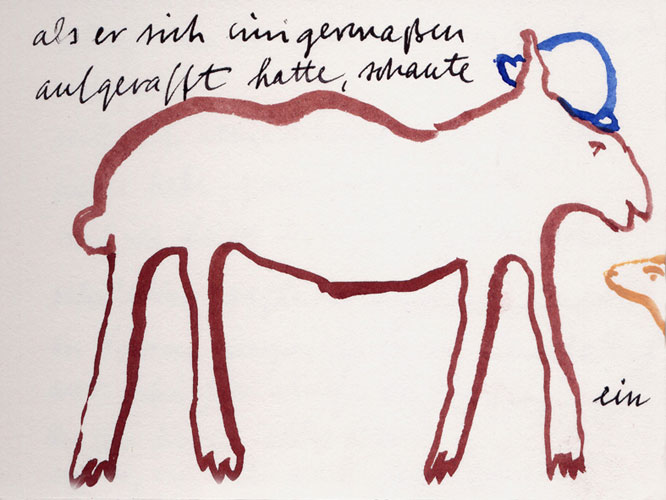 als er sich einigermaßen
aufgerafft hatte, schaute
ein